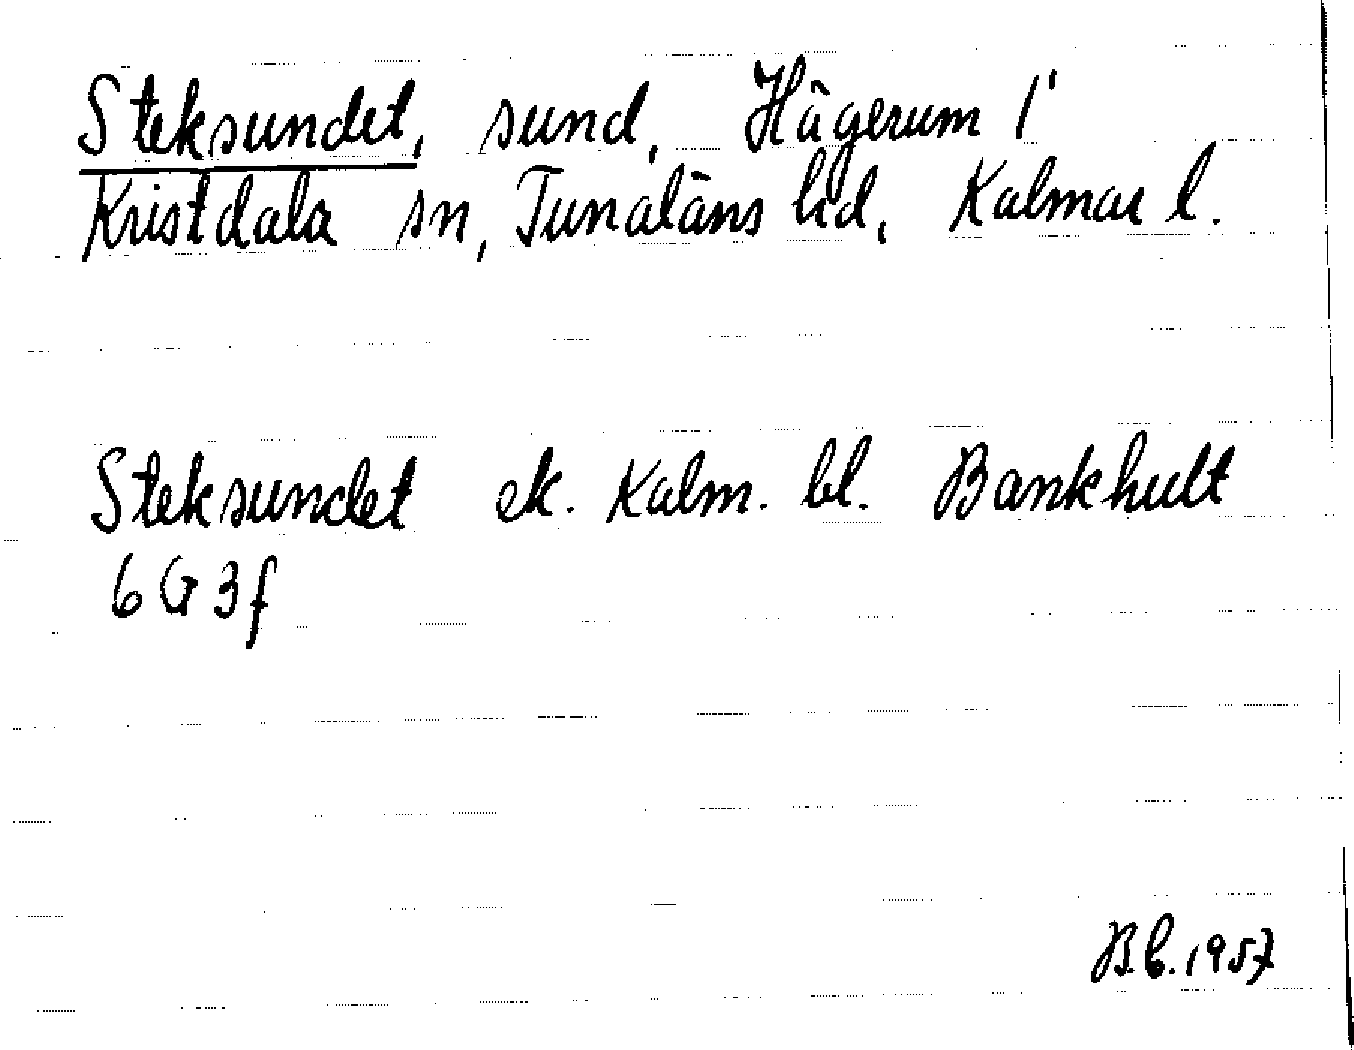 Steksundet, sund, Hägerum 1'
Kristdala sn, Tunaläns hd, Kalmar l.
Steksundet ek. Kalm. bl. Bankhult
6 G 3f
B.b. 1957